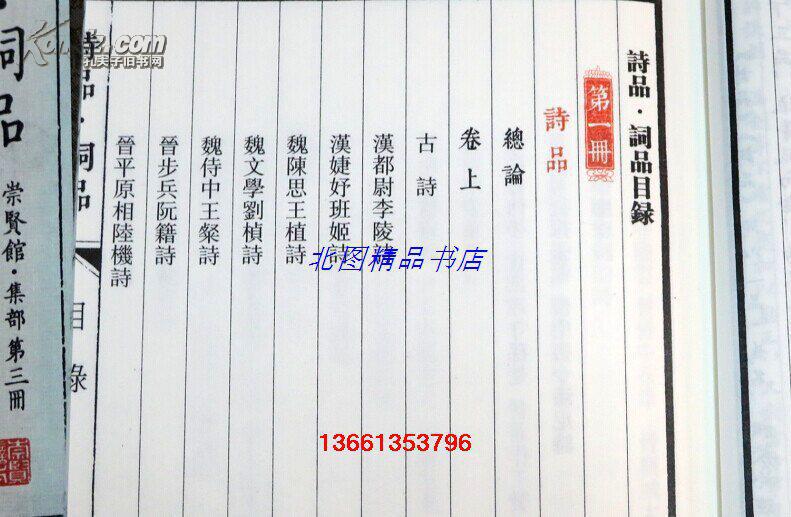 詩品·詞品目錄
第一冊
詩品
總論
卷上
古詩
漢都尉李陵詩
漢婕妤班姬詩
魏陳思王植詩
魏文學劉楨詩
魏侍中王粲詩
晉步兵阮籍詩
晉平原相陸機詩
詩品·詞品
目錄
詞品
崇賢館·集部第三冊
孔夫子旧书网
北图精品书店
13661353796